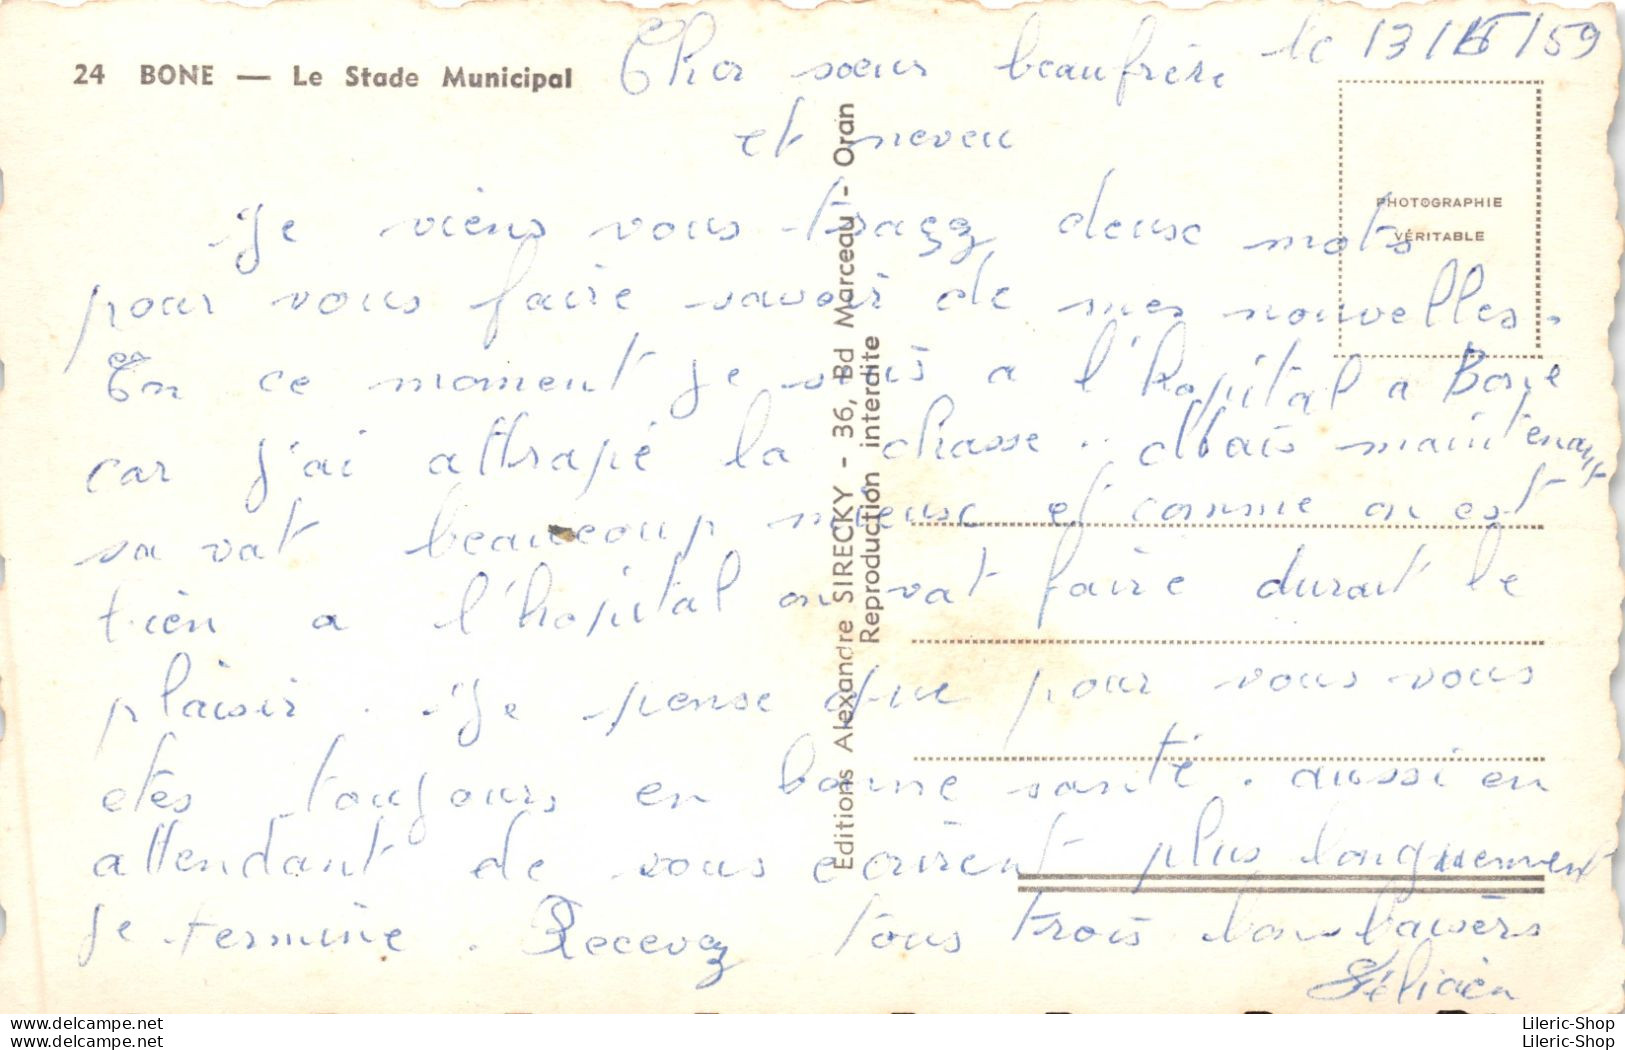 24 BONE — Le Stade Municipal
le 13/ /59
Cher sœur beaufrère
et neveu
Je viens vous trasez deux mots
pour vous faire savoir de mes nouvelles.
En ce moment je suis a l'hopital a Bone
car j'ai attrapé la chasse. Mais maintenant
sa vat beaucoup mieux et comme on est
tien a l'hopital on vat faire durait le
plaisir. Je pense que pour vous vous
etes toujours en bonne santé. aussi en
attendant de vous ecrirent plus longuement
je termine. Recevez tous trois bons baisèrs
Félicien
PHOTOGRAPHIE
VÉRITABLE
Editions Alexandre SIRECKY - 36, Bd Marceau - Oran
Reproduction interdite
Lileric-Shop
Lileric-Shop
Lileric-Shop
Lileric-Shop